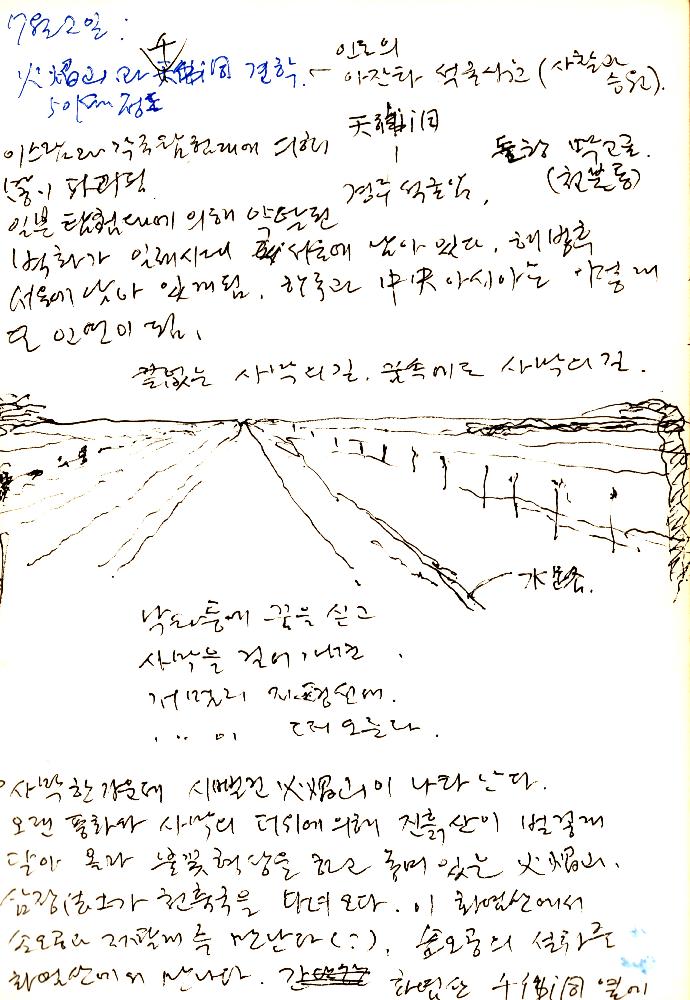 7월 2일 :
火焰山과 千佛洞 견학.
50km 정도
인도의
아잔타 석굴사원 (사찰과
승원).
天佛洞
경주 석굴암,
돈황 막고굴.
(천불동)
이스람과 각국탐험대에 의해
많이 파괴됨
일본 탐험대에 의해 약탈된
벽화가 일제시대 서울에 남아 있다. 해방후
서울에 남아 있게됨. 한국과 中央아시아는 이렇게
또 인연이 됨.
끝없는 사막의 길. 꿈속에도 사막의 길.
가로수.
낙타등에 꿈을 싣고
사막을 걸어가면
저 멀리 지평선에.
‥ 이 떠오른다.
사막 한가운데 시뻘건 火焰山이 나타난다.
오랜 풍화와 사막의 더위에 의해 진흙산이 벌겋게
달아 올라 불꽃형상을 하고 춤추고 있는 火焰山.
삼장法士가 천축국을 다녀오다. 이 화염산에서
손오공과 저팔계를 만난다(?). 손오공의 설화도
화염산에서 만나다. 화염산 千佛洞 옆에